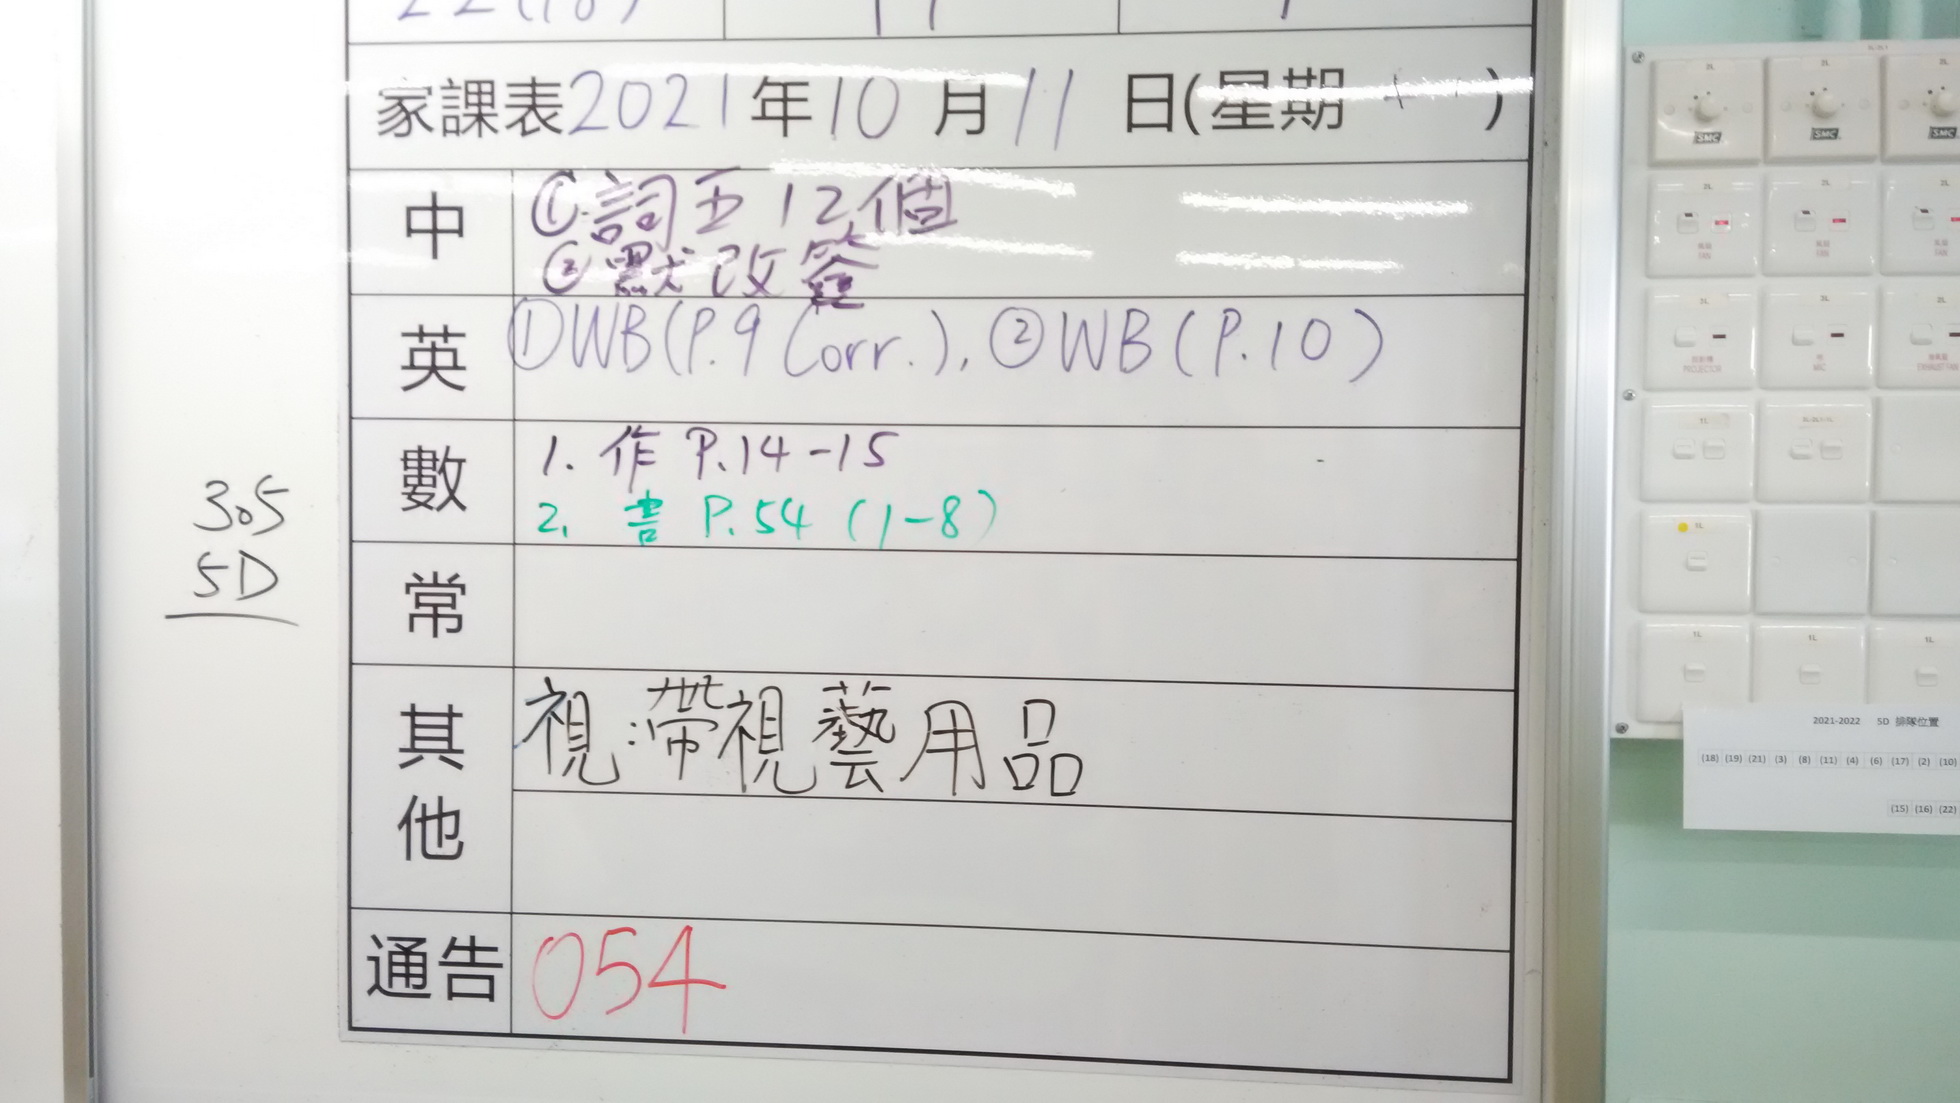 家課表2021年10月11日(星期 )
中
①詞五12個
②默改簽
英
①WB(P.9 Corr.), ②WB(P.10)
數
1. 作 P.14-15
2. 書 P.54 (1-8)
常
其他
視:帶視藝用品
通告
054
305
5D
SMC SMC SMC
FAN FAN FAN
PROJECTOR MIC EXHAUST FAN
2021-2022 5D 排隊位置
(18) (19) (21) (3) (8) (11) (4) (6) (17) (2) (10)
(15) (16) (22)